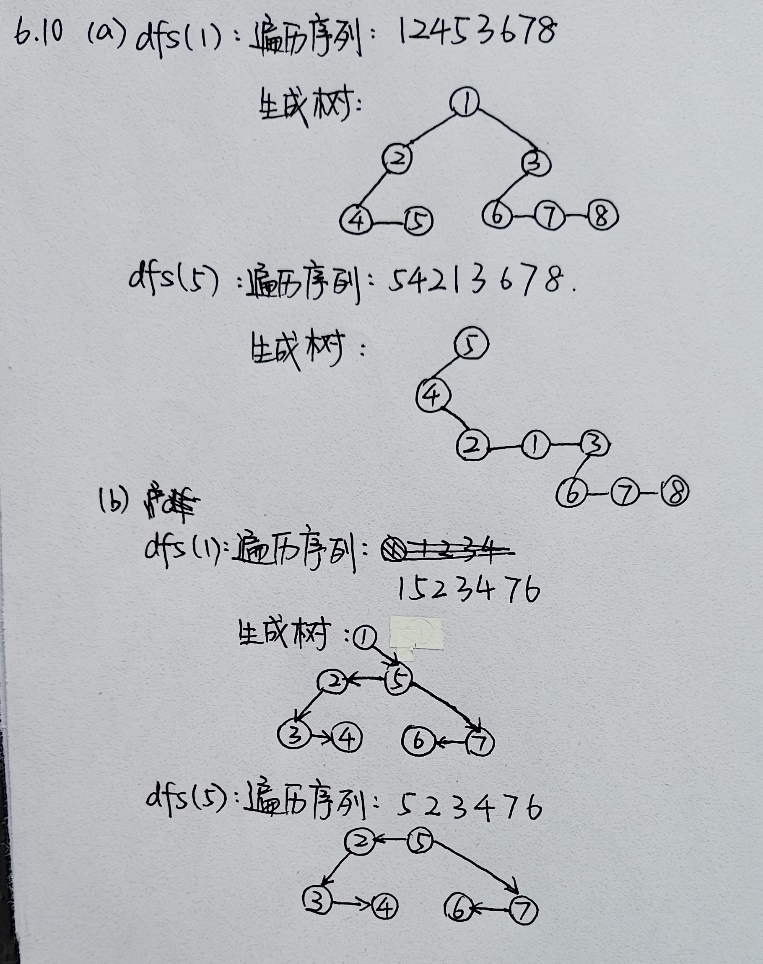 6.10 (a) dfs(1): 遍历序列: 12453678
生成树:
1
2 3
4 5 6 7 8
dfs(5): 遍历序列: 54213678.
生成树:
5
4
2 1 3
6 7 8
(b)
dfs(1): 遍历序列: 1234
1523476
生成树: 1
2 5
3 4 6 7
dfs(5): 遍历序列: 523476
2 5
3 4 6 7